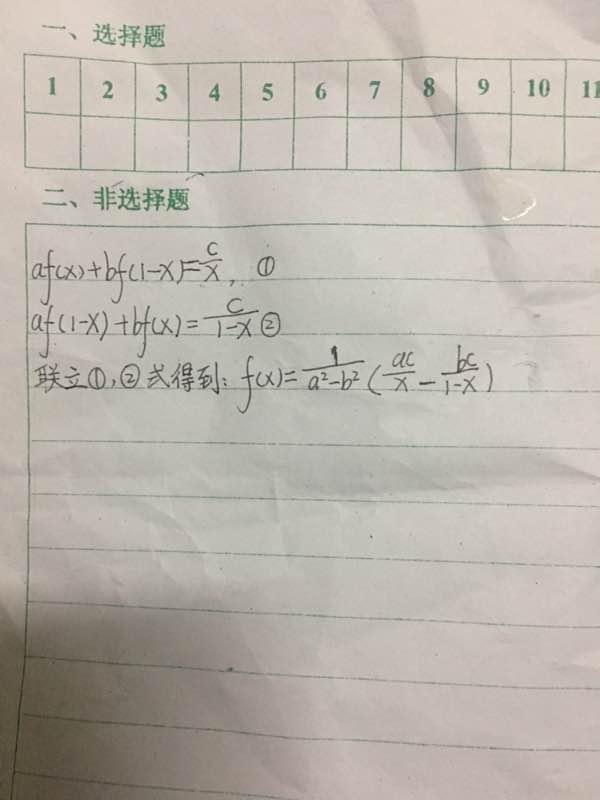 一、选择题
1 2 3 4 5 6 7 8 9 10 11
二、非选择题
af(x)+bf(1-x)=c/x, ①
af(1-x)+bf(x)=c/(1-x) ②
联立①,②式得到: f(x)=1/(a²-b²)(ac/x - bc/(1-x))